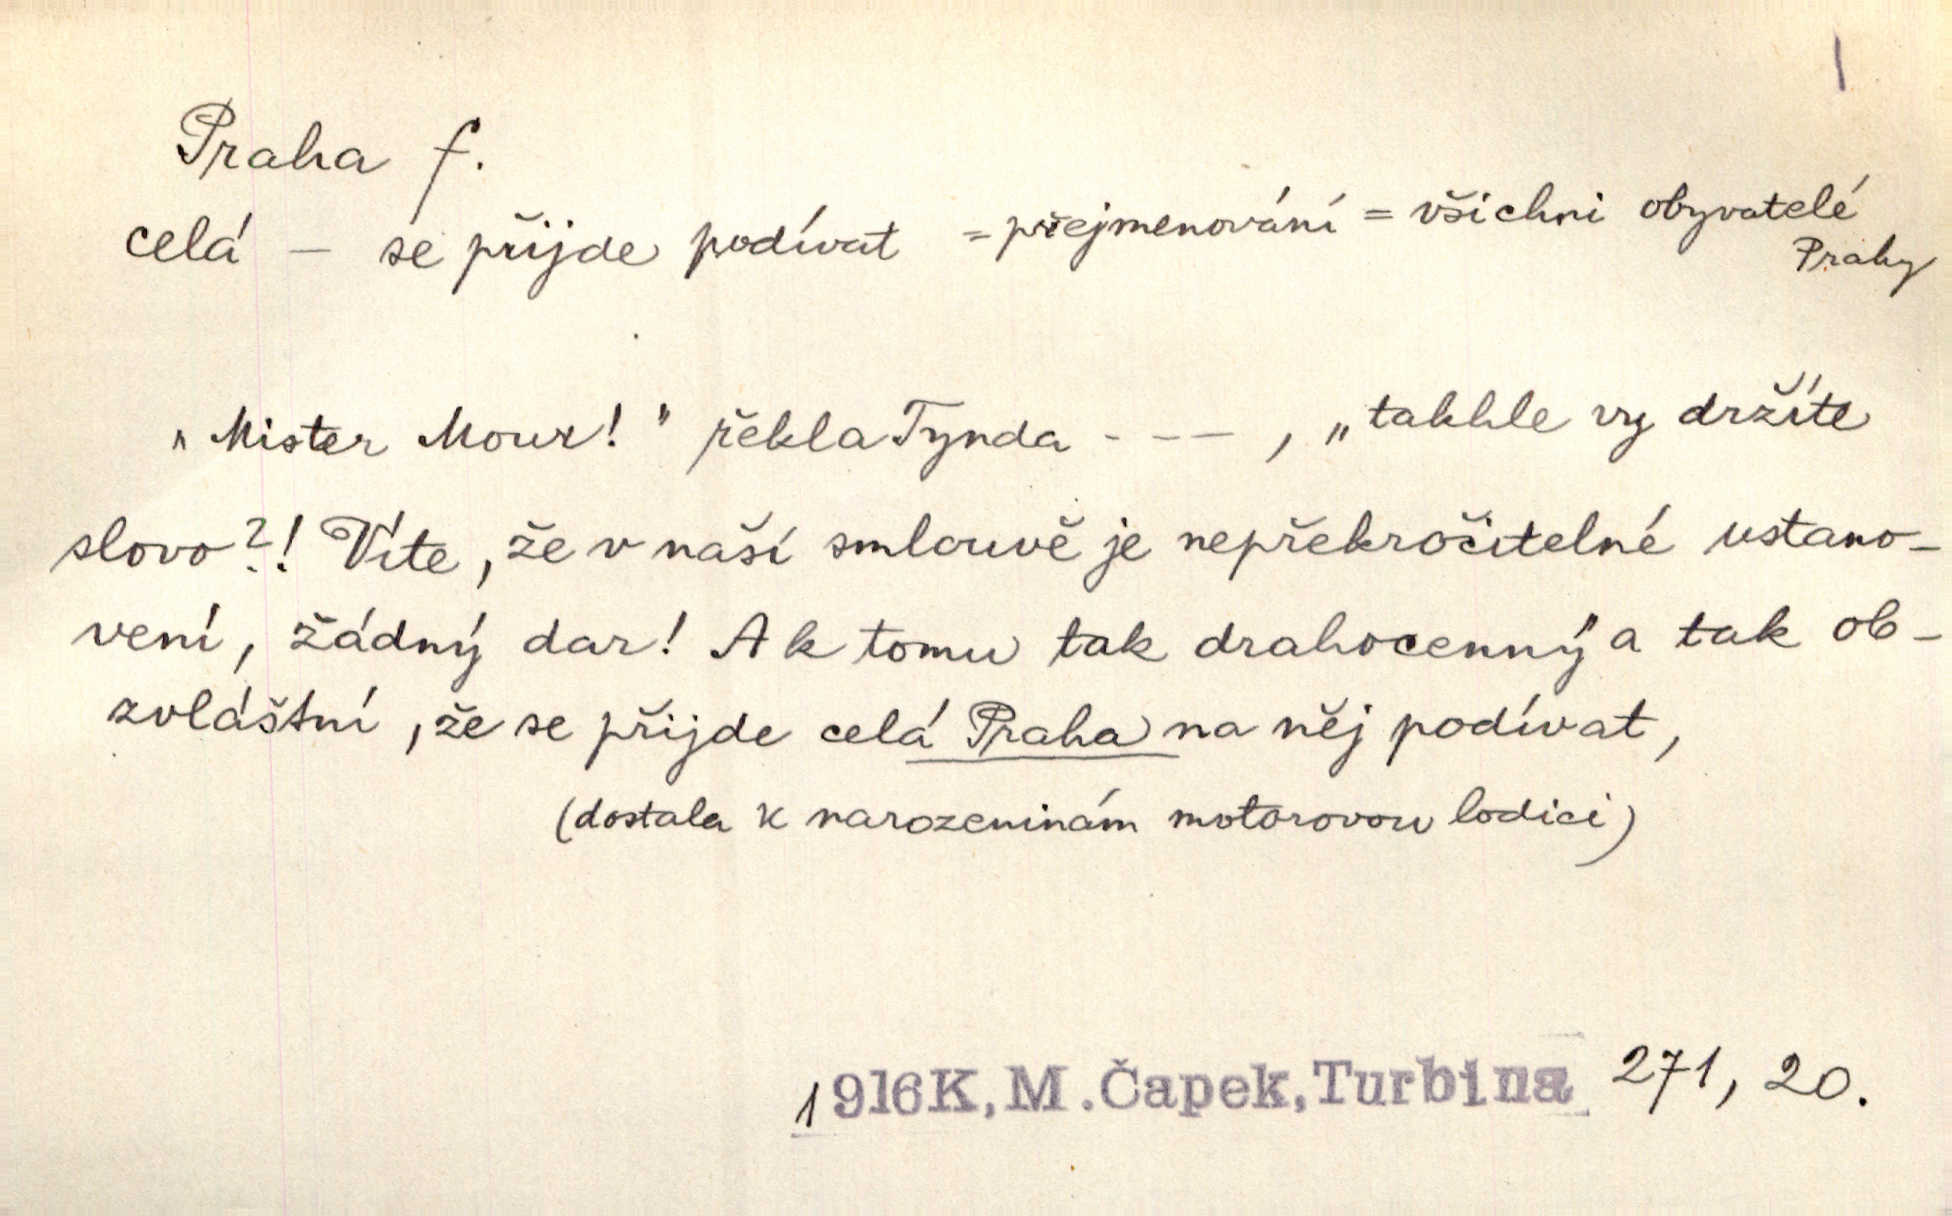 |
Praha f.
celá – se přijde podívat = přejmenování = všichni obyvatelé
Prahy
„Mister Mour!" řekla Tynda - - – , „takhle vy držíte
slovo?! Víte, že v naší smlouvě je nepřekročitelné ustano-
vení, žádný dar! A k tomu tak drahocenný a tak ob-
zvláštní, že se přijde celá Praha na něj podívat,
(dostala k narozeninám motorovou lodici)
1916 K. M. Čapek, Turbina 271, 20.